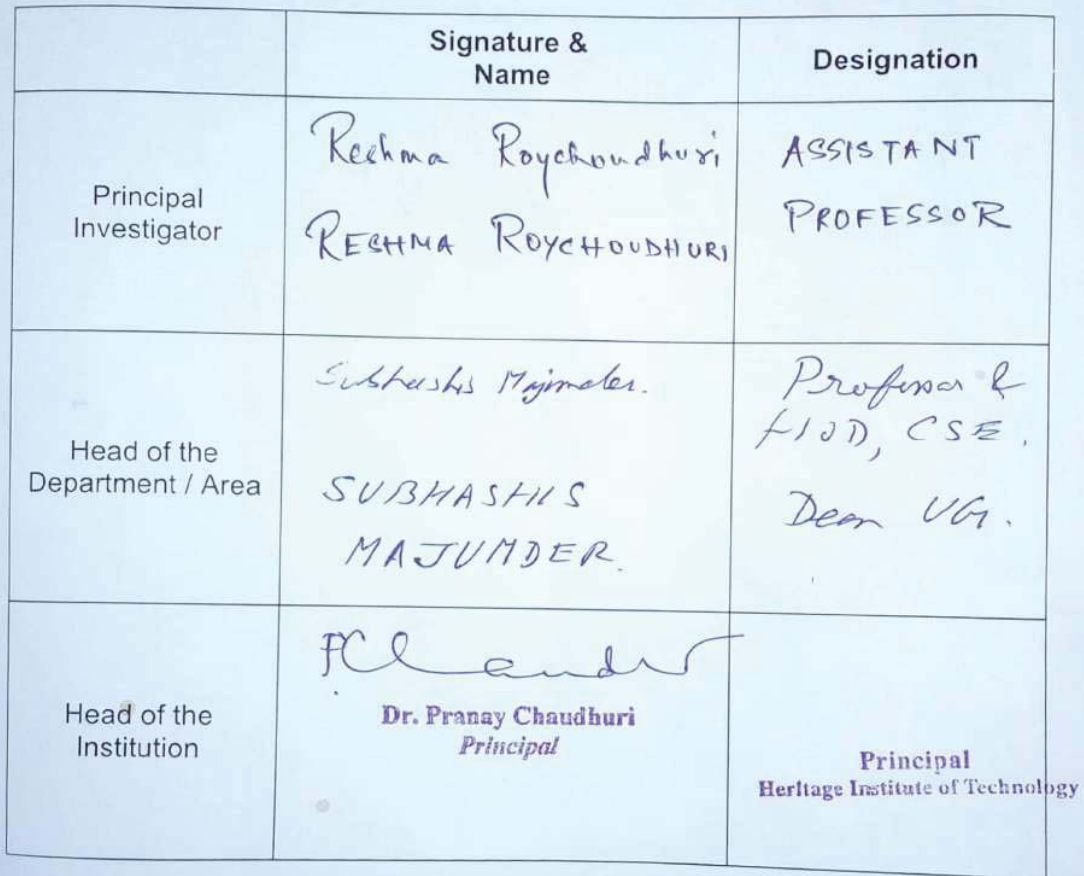 Signature &
Name
Designation
Principal
Investigator
Reshma Roychoudhuri
RESHMA ROYCHOUDHURI
ASSISTANT
PROFESSOR
Head of the
Department / Area
Subhashis Majumder.
SUBHASHIS
MAJUMDER.
Professor &
HOD, CSE.
Dean UG.
Head of the
Institution
Dr. Pranay Chaudhuri
Principal
Principal
Heritage Institute of Technology